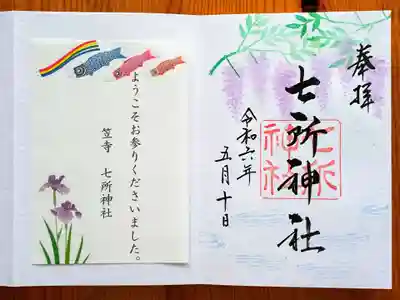 奉拝
七所神社
七所神社
令和六年
五月十日
ようこそお参りくださいました。
笠寺 七所神社